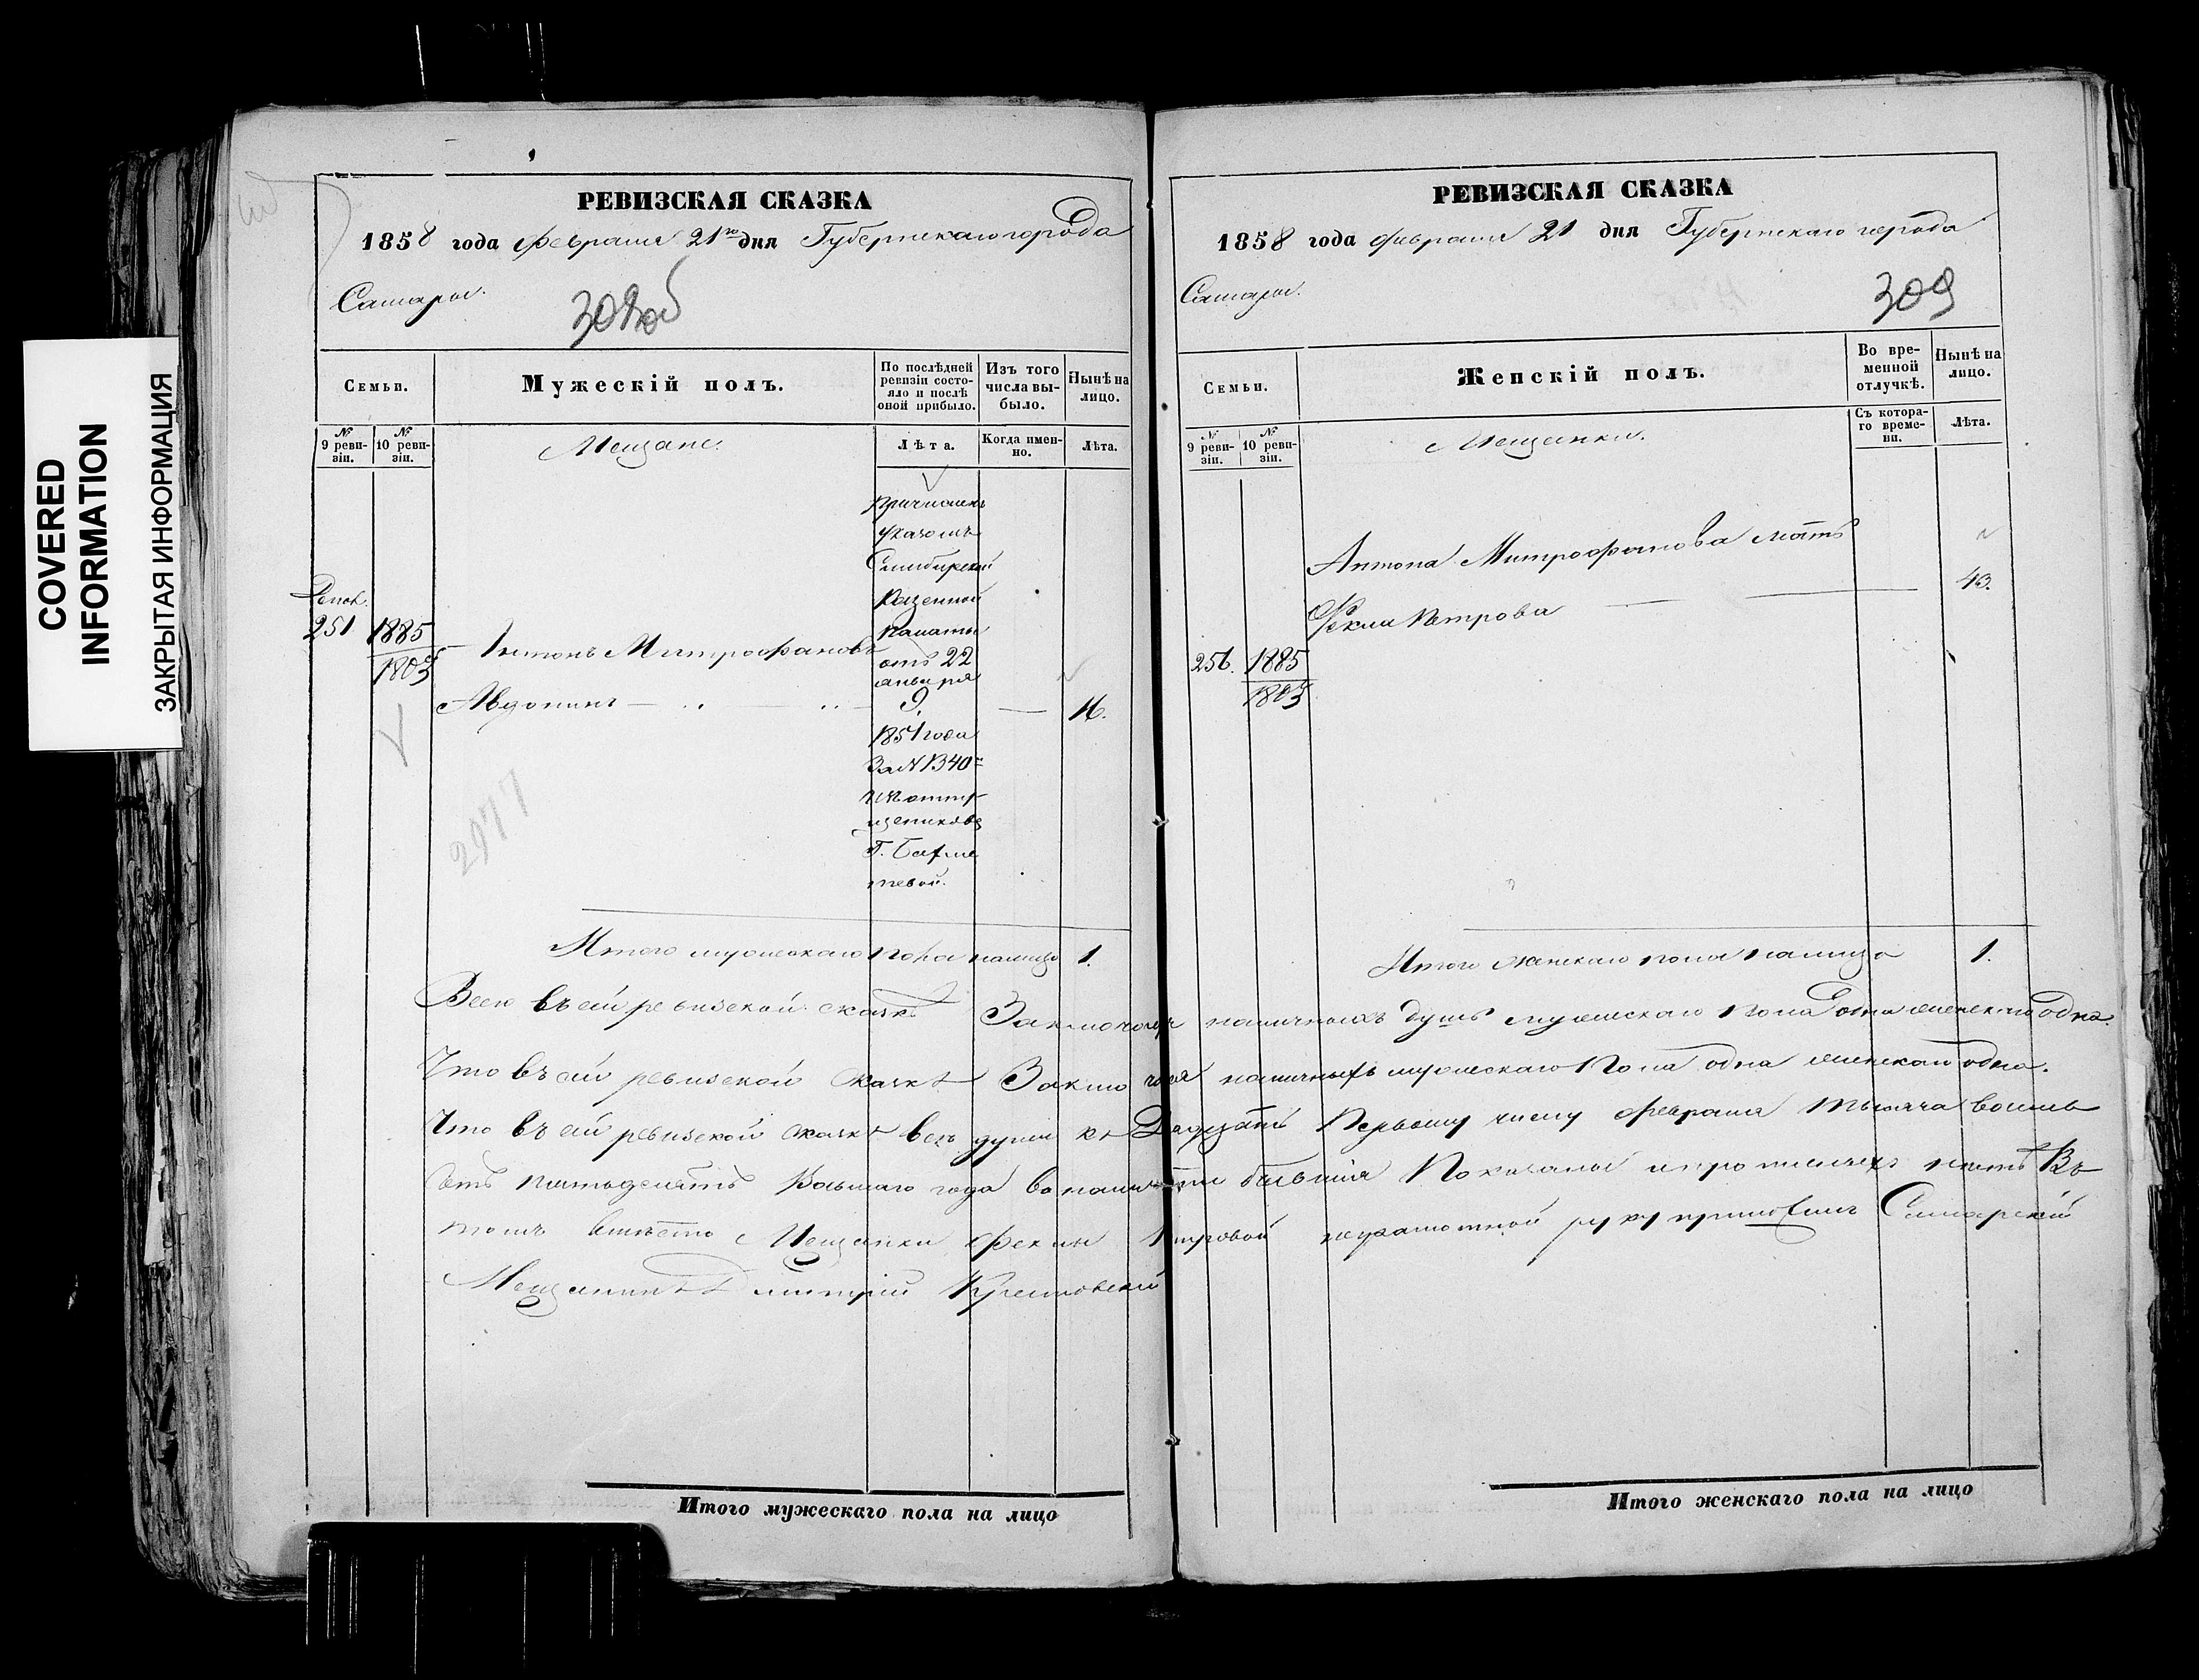 COVERED
INFORMATION
ЗАКРЫТАЯ ИНФОРМАЦИЯ
РЕВИЗСКАЯ СКАЗКА
1858 года февраля 21го дня Губернскаго города
Самары.
308об
Семьи.
Мужескій полъ.
По послѣдней
ревизіи состо-
яло и послѣ
оной прибыло.
Изъ того
числа вы-
было.
Нынѣ на
лицо.
№
9 реви-
зіи.
№
10 реви-
зіи.
Мещане.
Лѣта.
Когда имен-
но.
Лѣта.
причисленъ
указомъ
Симбирской
Казенной
Палаты
отъ 22
января
9.
1851 года
За № 1340
г.
251
1885
1803
Антонъ Митрофановъ
Авдонинъ
16.
2977
Итого мужескаго пола налицо 1.
РЕВИЗСКАЯ СКАЗКА
1858 года февраля 21 дня Губернскаго города
Самары.
309
Семьи.
Женскій полъ.
Во вре-
менной
отлучкѣ.
Нынѣ на
лицо.
№
9 реви-
зіи.
№
10 реви-
зіи.
Мещанки.
Съ котора-
го време-
ни.
Лѣта.
Антона Митрофанова мать
Фекла Петрова
43.
256. 1885
1803
Итого женскаго пола налицо 1.
Всего въ сей ревизской сказкѣ Заключается наличныхъ душъ мужескаго пола одна женскаго одна.
Что въ сей ревизской сказкѣ Заключается наличныхъ мужескаго пола одна женскаго одна.
Что въ сей ревизской сказкѣ всѣ души къ Двадцать Первому числу февраля тысяча восемь
сотъ пятьдесятъ Восьмаго года въ наличности бывшія Показаны и прописныхъ нѣтъ Въ
томъ вмѣсто Мещанки Феклы Петровой неграмотной руку приложилъ Самарскій
Мещанинъ Дмитрій
Итого мужескаго пола на лицо
Итого женскаго пола на лицо